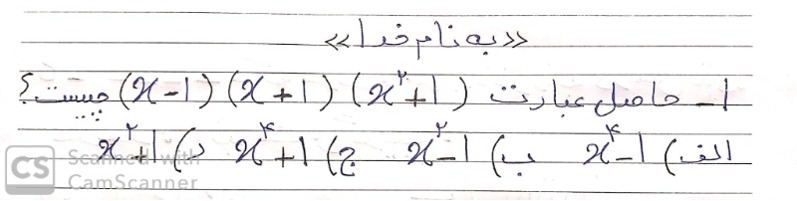 «به نام خدا»
۱- حاصل عبارت (x²+1) (x+1) (x-1) چیست؟
الف) x⁴-1 ب) x²-1 ج) x⁴+1 د) x²+1
CS Scanned with
CamScanner